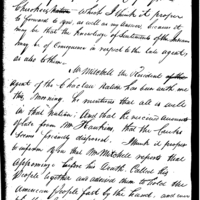 Cherokee Nation — which I think it proper
to forward to you, as well as my answer. It
may be that the Knowledge of Sentiments of the
may be of consequence in respect to the late agent,
as also to them.
Mr Mitchell the Resident
agent of the Choctaw Nation has been with me
this Morning. he mentions that all is well
in that Nation: And that he received accounts
of late from Mr Hawkins that the Creeks
seems peaceably disposed. I think it proper
to inform You that Mr Mitchell reports that
before his death Called his
People together and advised them to hold the
American people fast by the hand, and